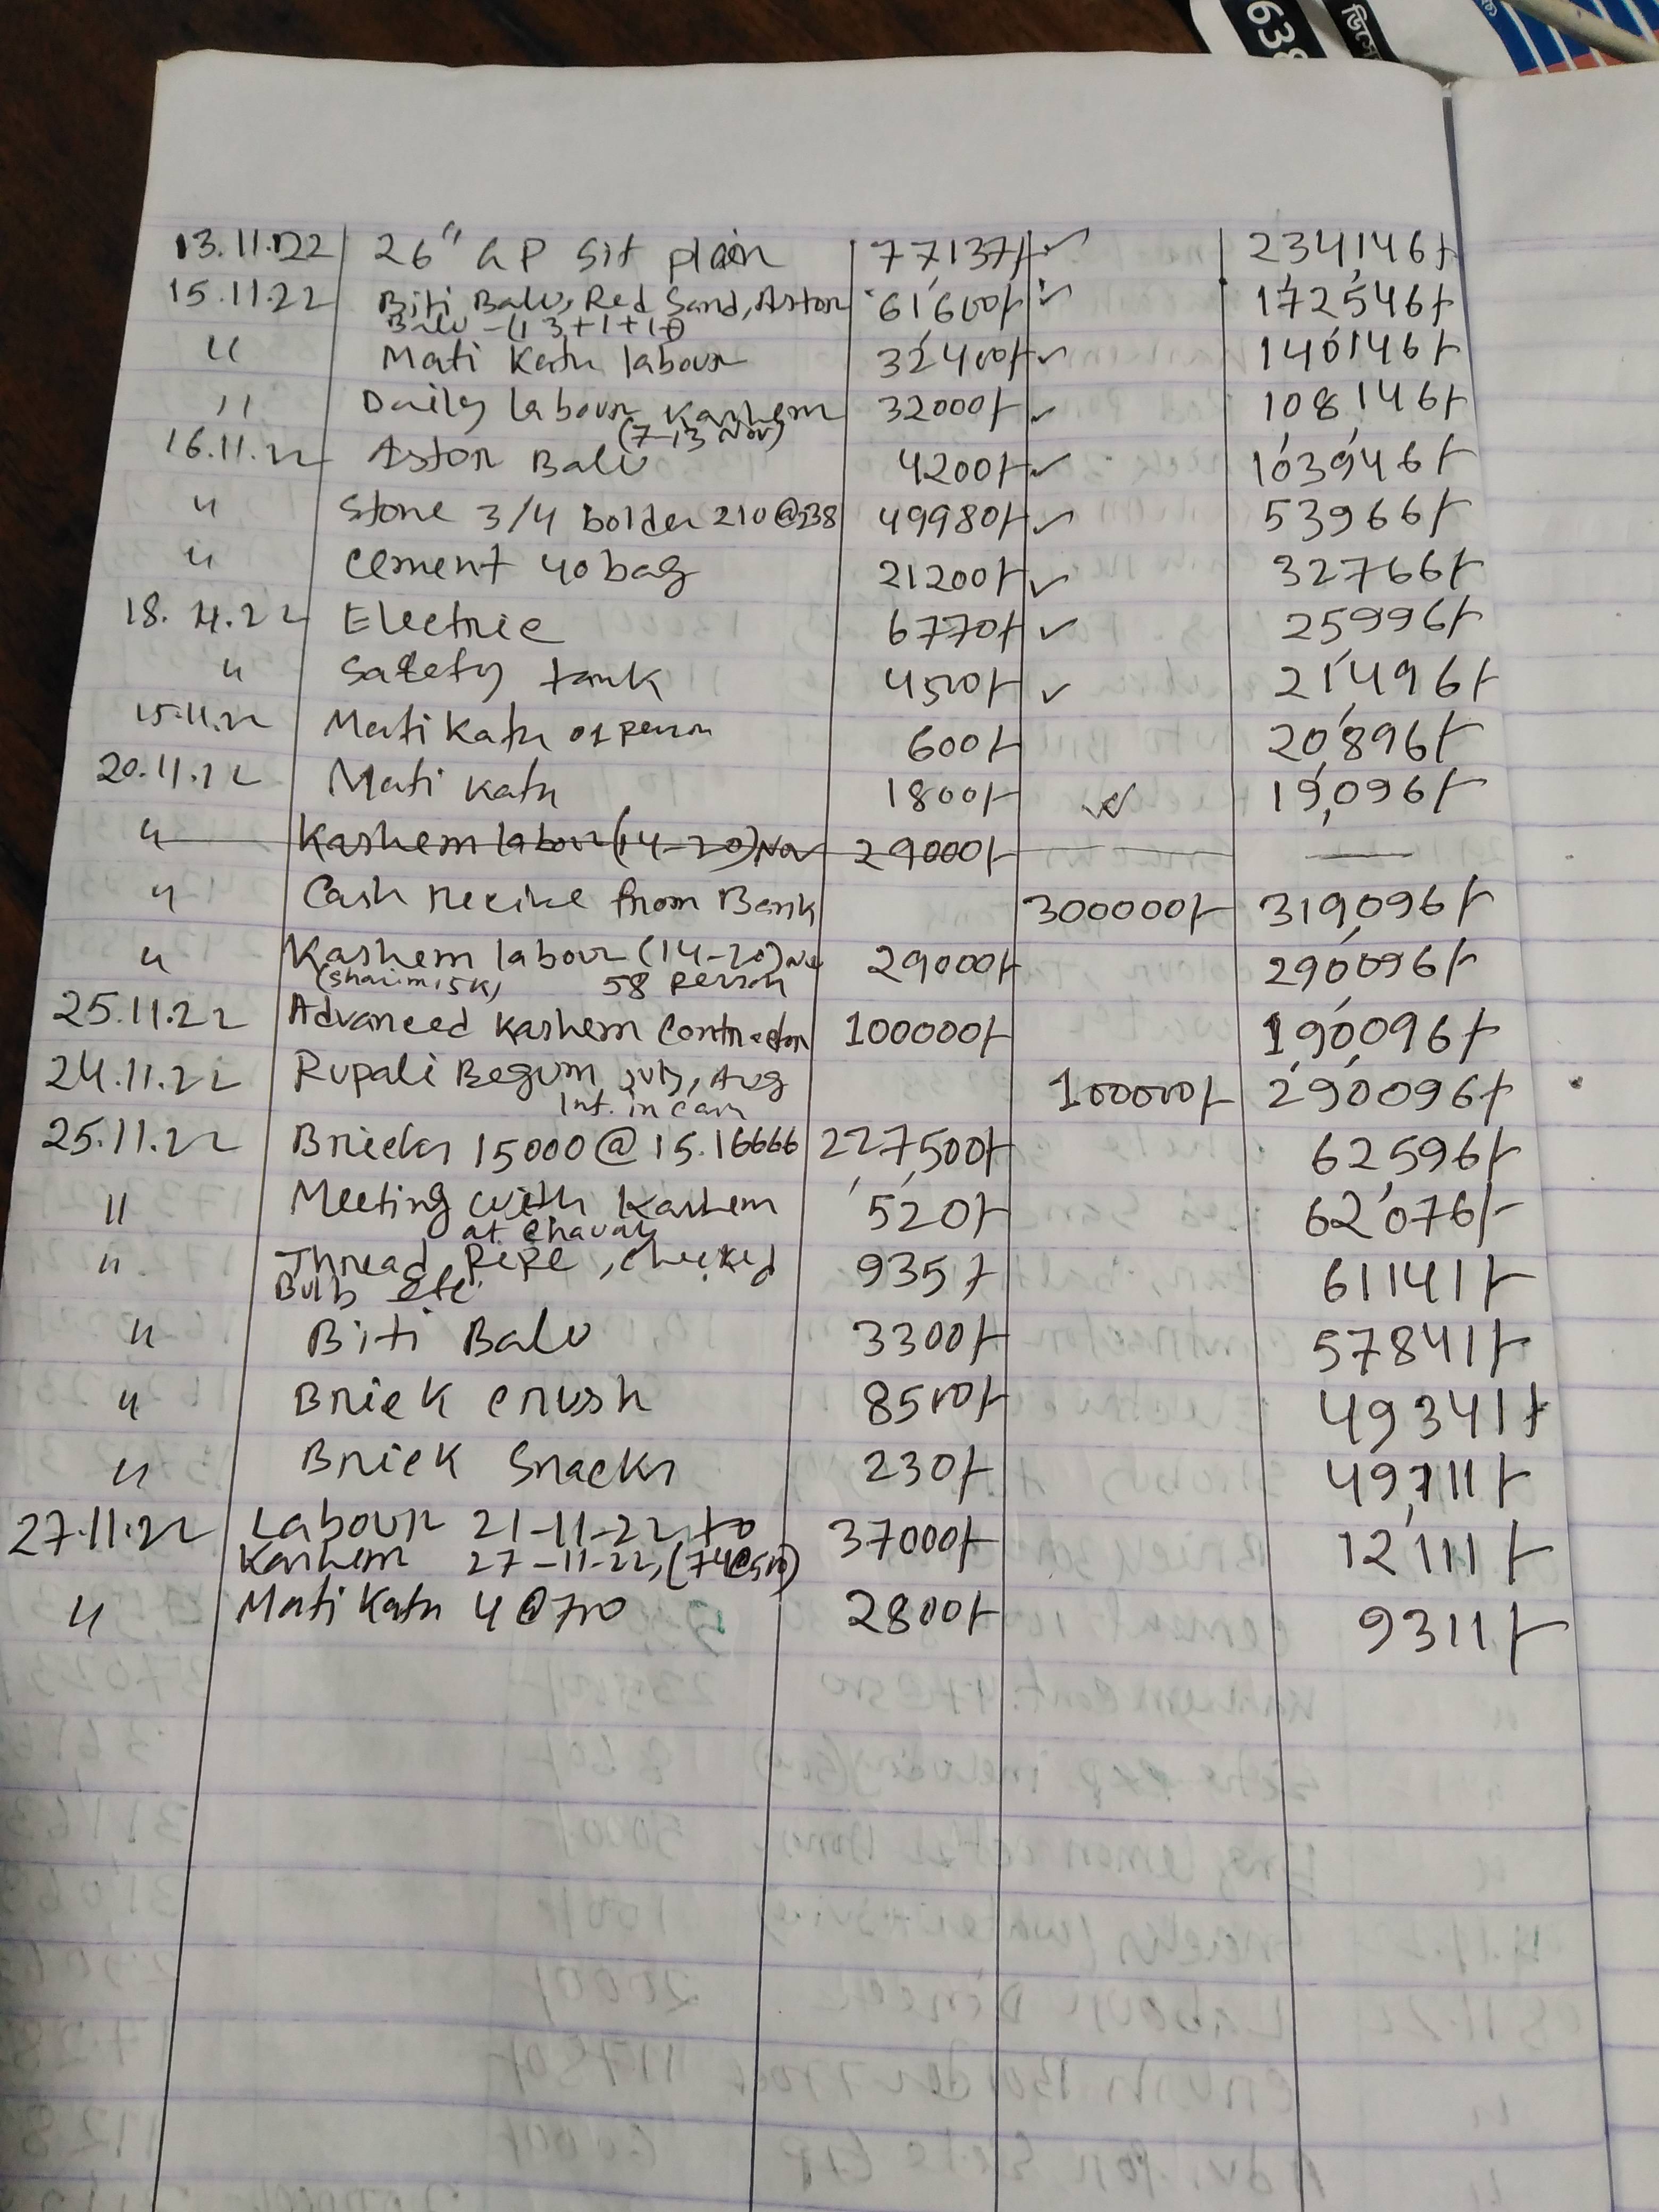 638
13.11.22 26" GP Sit plain 77137/- ✓ 234,146/-
15.11.22 Biti Balu, Red Sand, Aston 61,600/- ✓ 1,72,546/-
Balu -
" Mati Kata labour 32,400/- ✓ 1,40,146/-
" Daily labour Kashem 32000/- ✓ 108,146/-
(7-13 Nov)
16.11.22 Aston Balu 4200/- ✓ 1,03,946/-
" Stone 3/4 bolder 210@238 49980/- ✓ 53966/-
" Cement 40 bag 21200/- ✓ 32766/-
18.11.22 Electric 6770/- ✓ 25996/-
" Safety tank 4500/- ✓ 21,496/-
15.11.22 Mati Kata 01 person 600/- 20,896/-
20.11.22 Mati Kata 1800/- ✓ 19,096/-
" Kashem labour (14-20) Nov 29000/- —
" Cash recive from Bank 300000/- 319,096/-
" Kashem labour (14-20) Nov 29000/- 290,096/-
58 person
25.11.22 Advanced Kashem Contractor 100000/- 1,90,096/-
24.11.22 Rupali Begum July, Aug 100000/- 2,90,096/-
Int. in
25.11.22 Bricks 15000@15.16666 2,27,500/- 62596/-
" Meeting with Kashem 520/- 62,076/-
at
" Thread Pipe, 935/- 61141/-
Bulb etc
" Biti Balu 3300/- 57841/-
" Brick crush 8500/- 49341/-
" Brick Snacks 230/- 49,111/-
27.11.22 Labour 21-11-22 to 37000/- 12,111/-
Kashem 27-11-22, (74@500)
" Mati Kata 4@700 2800/- 9311/-